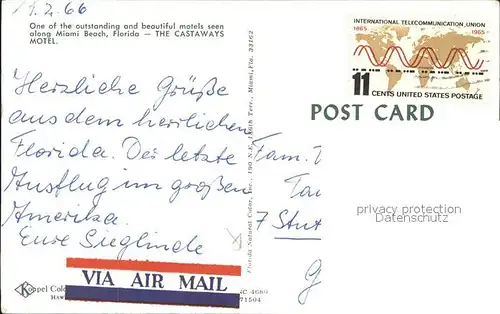 14.2.66
One of the outstanding and beautiful motels seen
along Miami Beach, Florida — THE CASTAWAYS
MOTEL.
Herzliche Grüße
aus dem herrlichen
Florida. Der letzte
Ausflug im großen
Amerika.
Eure Sieglinde
VIA AIR MAIL
Koppel Col
4680
71504
Florida Natural Color, Inc., 190 N.E. Terr., Miami, Fla. 33162
INTERNATIONAL TELECOMMUNICATION UNION
1865 1965
11
CENTS UNITED STATES POSTAGE
POST CARD
Fam.
7 Stut
privacy protection
Datenschutz